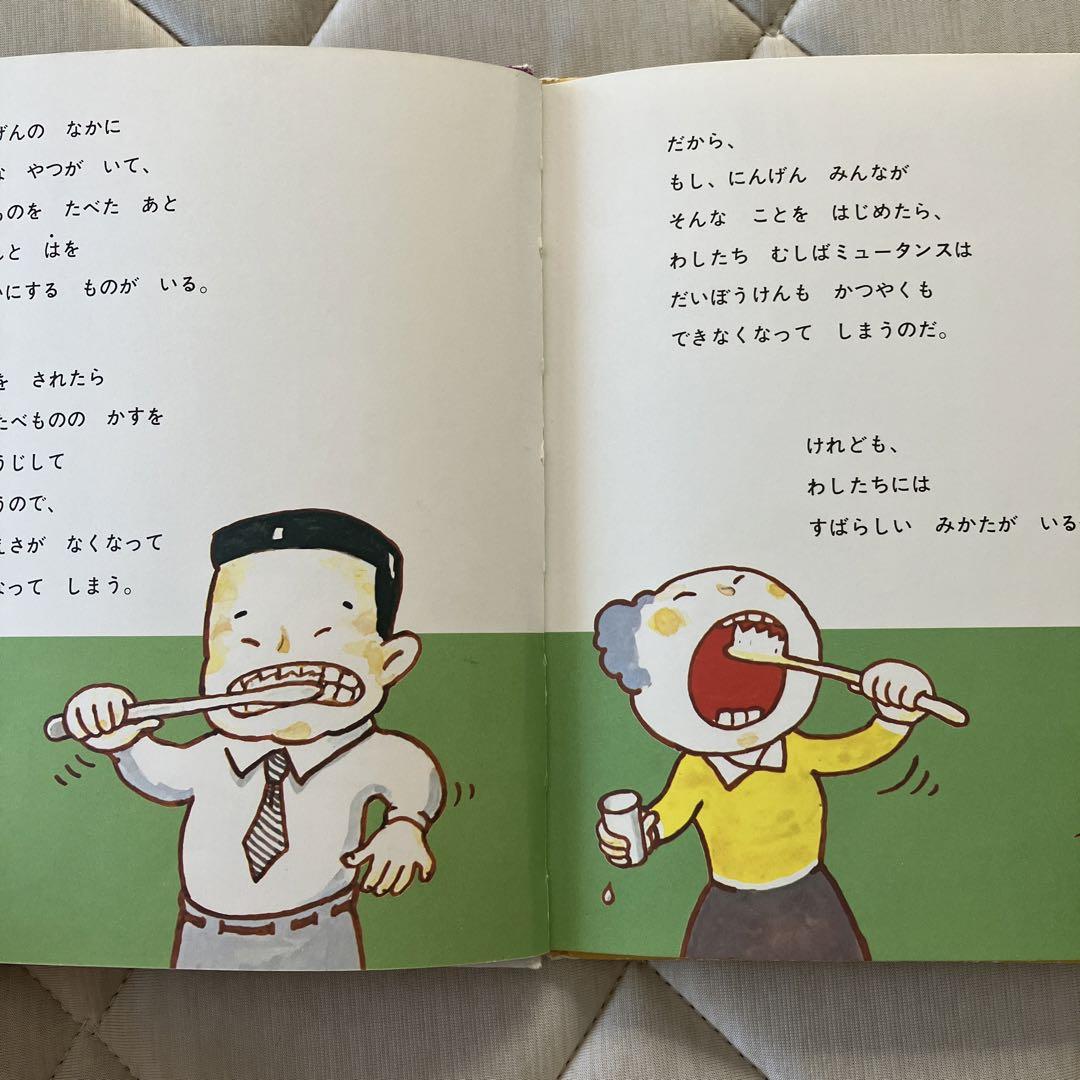 げんの なかに
な やつが いて、
ものを たべた あと
んと はを
いにする ものが いる。
を されたら
たべものの かすを
うじして
うので、
えさが なくなって
なって しまう。
だから、
もし、にんげん みんなが
そんな ことを はじめたら、
わしたち むしばミュータンスは
だいぼうけんも かつやくも
できなくなって しまうのだ。
けれども、
わしたちには
すばらしい みかたが いる